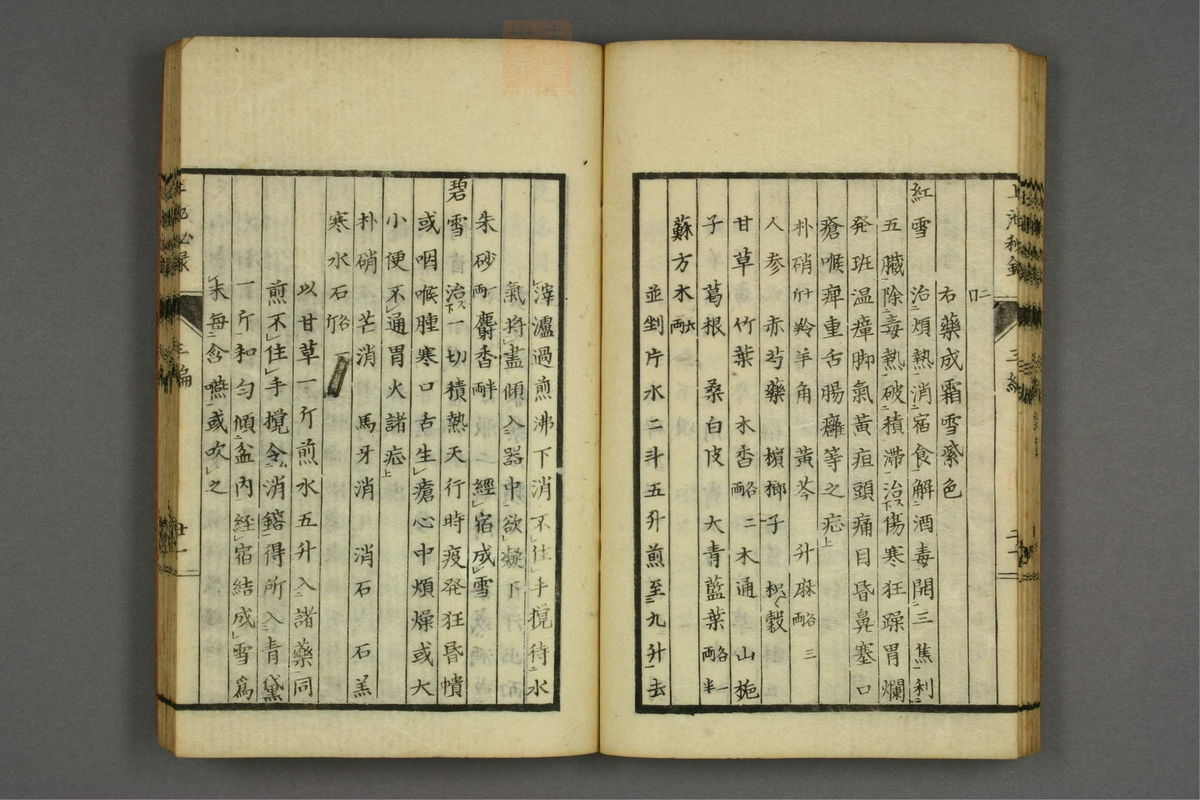 右藥成霜雪紫色
紅雪 治煩熱消宿食解酒毒開三焦利
五臟除毒熱破積滯治傷寒狂躁胃爛
発班温瘴脚氣黄疸頭痛目昏鼻塞口
瘡喉痺重舌腸癰等之疟上
朴硝斤羚羊角 黄芩 升麻各兩三
人参 赤芍藥 檳榔子 枳殻
甘草 竹葉 木香各兩二 木通 山梔
子 葛根 桑白皮 大青藍葉各兩一半
蘇方木六兩
並剉片水二斗五升煎至九升去
滓濾過煎沸下消不住手攪待水
氣將盡傾入器中欲凝下
朱砂一兩 麝香半兩 經宿成雪
碧雪 治一切積熱天行時疫発狂昏憒
或咽喉腫寒口舌生瘡心中煩燥或大
小便不通胃火諸疟上
朴硝 芒消 馬牙消 消石 石羔
寒水石各一斤
以甘草一斤煎水五升入諸藥同
煎不住手攪令消鎔得所入青黛
一斤和匀傾盆内経宿結成雪爲
末毎含嚥或吹之
三編
廿一